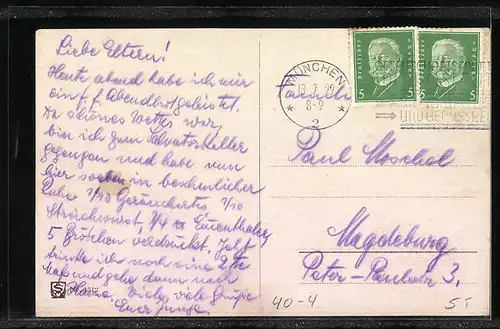 Liebe Eltern!
Heute abend habe ich mir
ein f. f. Abendbrot geleistet.
Da schönes Wetter war,
bin ich zum Salvatorkeller
gegangen und habe nun
hier soeben in beschaulicher
Ruhe 1/10 Geräuchertes 1/10
Streichwurst, 3/4
5 Brötchen verdrückt. Jetzt
trinke ich noch eine 2te
Maß und gehe dann nach
Hause. Viele, viele Grüße
Euer Junge.
MÜNCHEN
13.7.29
8-9
2
Familie
Paul Moschel
Magdeburg
Peter-Paulstr 3.
5 5
40-4
5-